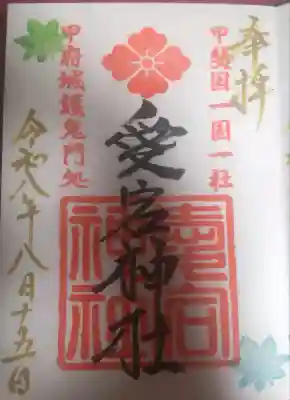 奉拝
甲斐国一国一社
愛宕神社
愛宕神社
甲府城護鬼門処
令和八年八月十五日